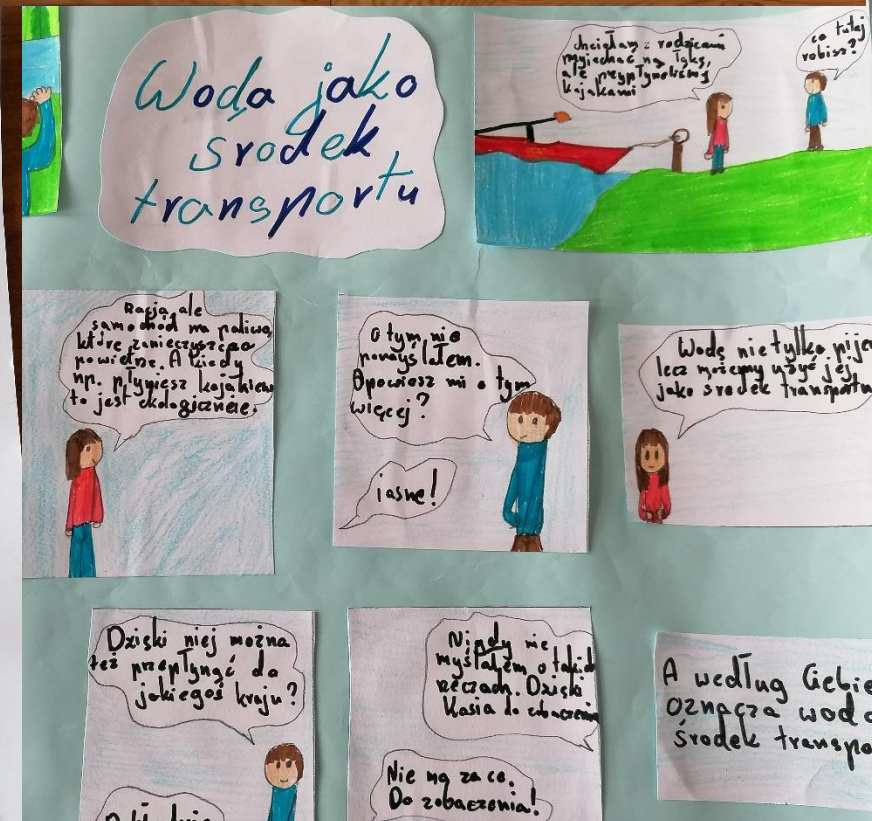 Woda jako
środek
transportu
chciałam z rodzicami
wyjechać na łąkę,
ale przypłynęliśmy
kajakami
co tutaj
robisz?
Racja, ale
samochód ma paliwo,
które zanieczyszcza
powietrze. A kiedy
np. płyniesz kajakiem
to jest ekologicznie.
O tym nie
pomyślałem.
Opowiesz mi o tym
więcej?
jasne!
Wodę nie tylko pije
lecz możemy użyć jej
jako środek transportu
Dzięki niej można
też przepłynąć do
jakiegoś kraju?
Nigdy nie
myślałem o takich
rzeczach. Dzięki
Kasia do zobaczenia
Nie ma za co.
Do zobaczenia!
A według Ciebie
oznacza woda
środek transpo